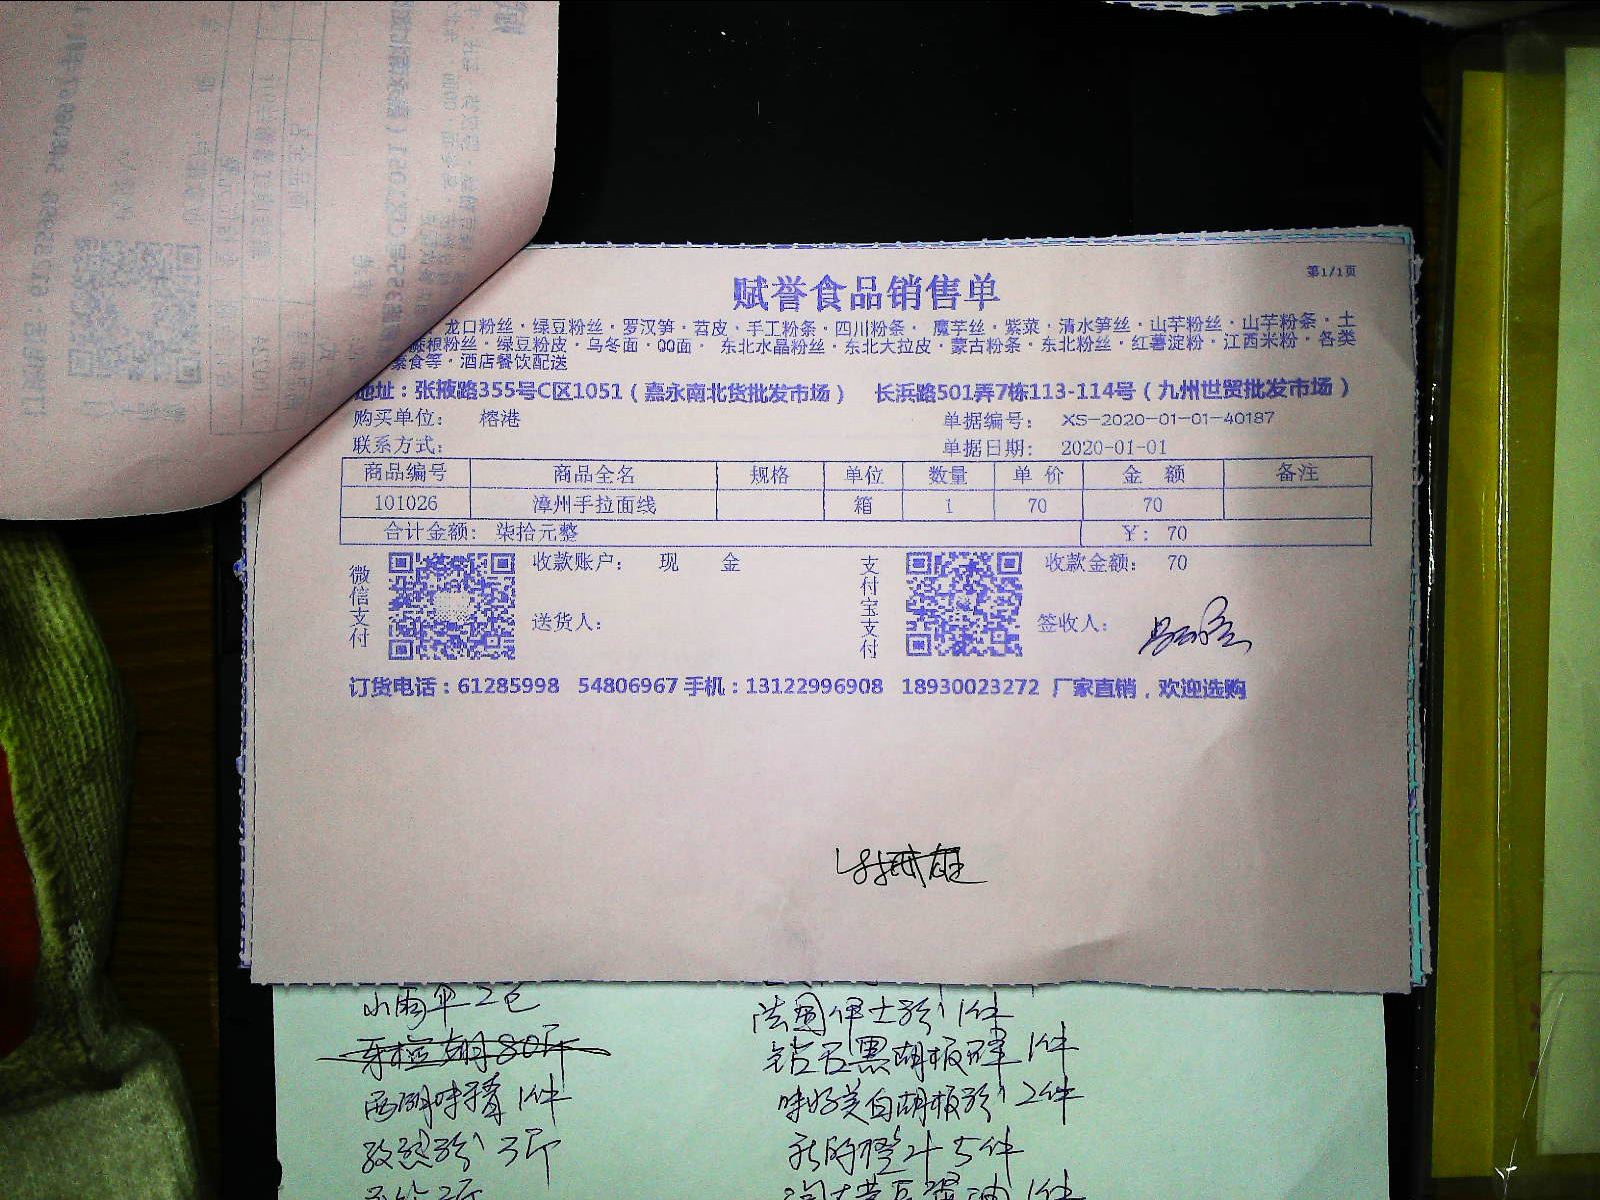 第1/1页
赋誉食品销售单
龙口粉丝·绿豆粉丝·罗汉笋·苕皮·手工粉条·四川粉条· 魔芋丝·紫菜·清水笋丝·山芋粉丝·山芋粉条·土
蕨根粉丝·绿豆粉皮·乌冬面·QQ面· 东北水晶粉丝·东北大拉皮·蒙古粉条·东北粉丝·红薯淀粉·江西米粉·各类
素食等·酒店餐饮配送
地址：张掖路355号C区1051（嘉永南北货批发市场） 长浜路501弄7栋113-114号（九州世贸批发市场）
购买单位： 榕港 单据编号： XS-2020-01-01-40187
联系方式： 单据日期： 2020-01-01
商品编号 商品全名 规格 单位 数量 单价 金额 备注
101026 漳州手拉面线 箱 1 70 70
合计金额： 柒拾元整 ￥：70
微信支付 收款账户： 现金 支付宝支付 收款金额： 70
送货人： 签收人：
订货电话：61285998 54806967 手机：13122996908 18930023272 厂家直销，欢迎选购
小雨伞2包 法国伊士粉1件
钻石黑胡椒碎1件
西湖味精1件 味好美白胡椒粉2件
孜然粉3斤 5件